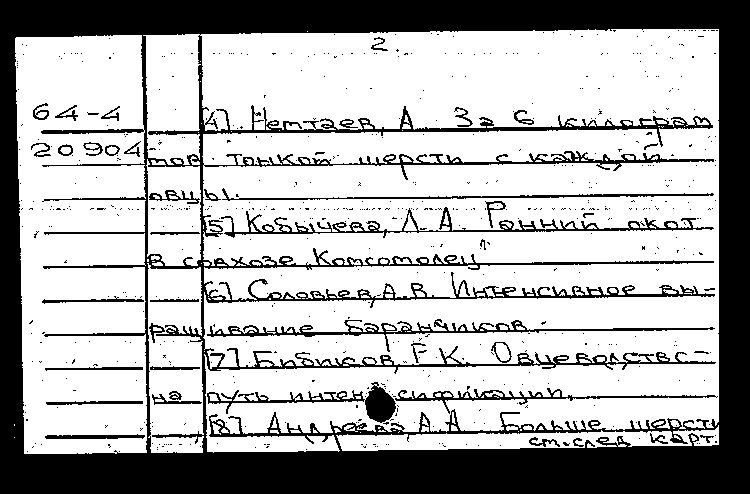 2.
64-4 [4]. Нептаев, А. За 6 килограм
20904 мов тонкой шерсти с каждой
овцы.
[5] Кобычева, Л. А. Ранний окот
в совхозе „Комсомолец"
[6] Соловьев, А. В. Интенсивное вы-
ращивание баранчиков.-
[7] Бибиков, Г. К. Овцеводство-
на путь интенсификации.
[8] Андреева, А. А. Больше шерсти
ст. след. карт.